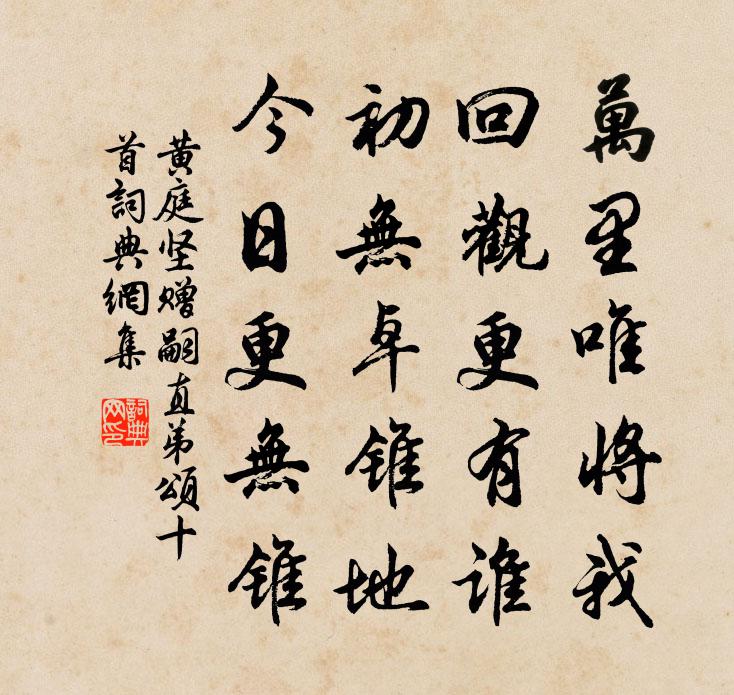 萬里唯將我
回觀更有誰
初無卓錐地
今日更無錐
黄庭坚贈嗣直弟頌十
首詞典網集
詞典
网印